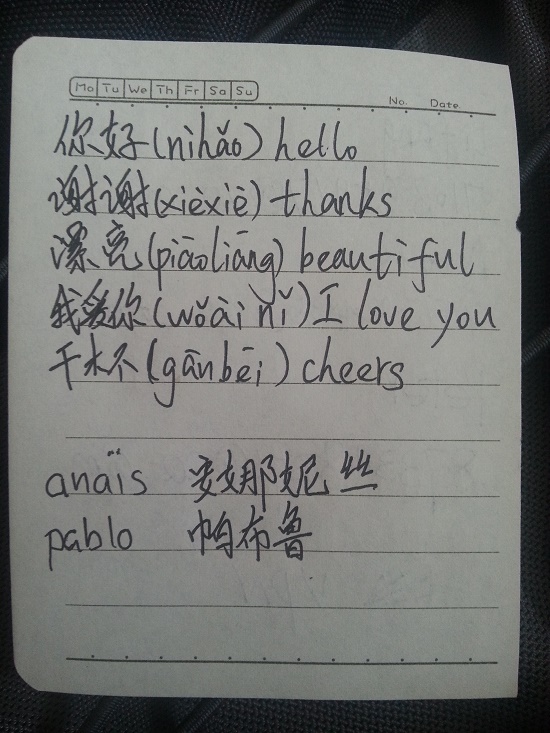 Mo Tu We Th Fr Sa Su
No. Date.
你好(nìhǎo) hello
谢谢(xièxiè) thanks
漂亮(piāoliāng) beautiful
我爱你(wǒài nǐ) I love you
干杯(gānbēi) cheers
anaïs 安娜妮丝
pablo 帕布鲁